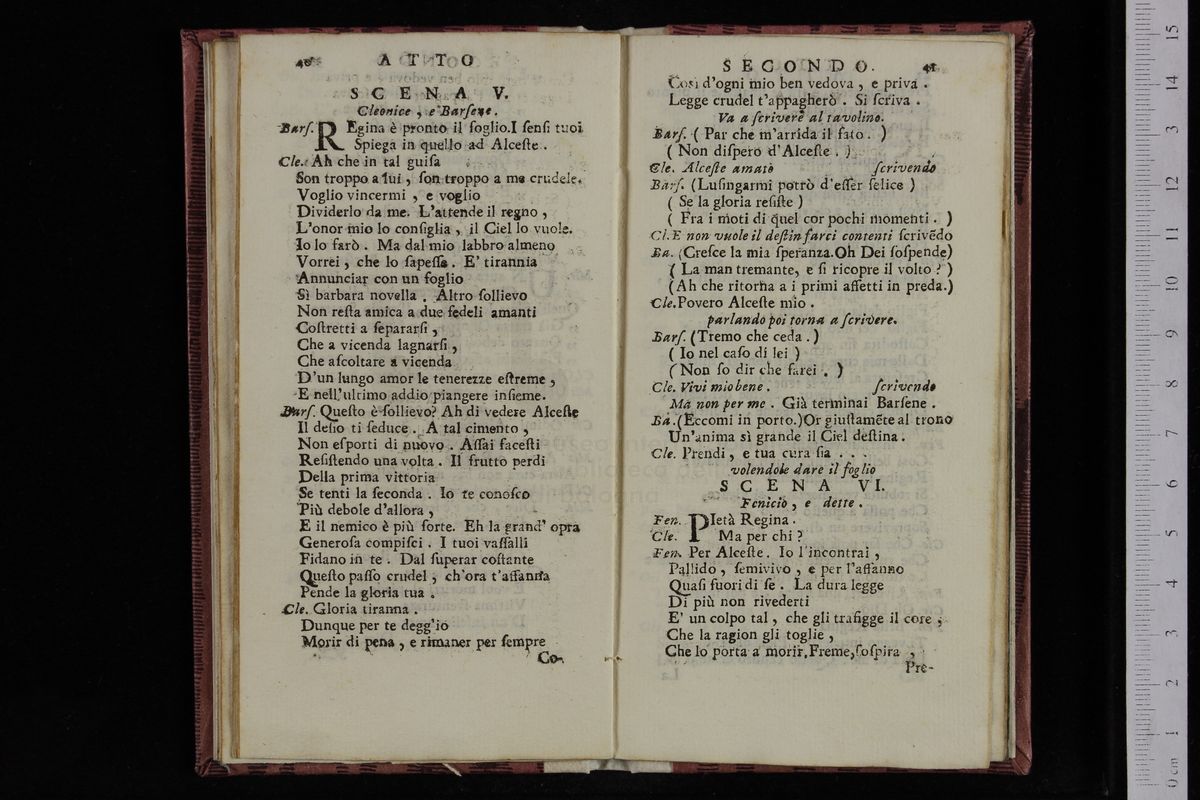 40 ATTO
SCENA V.
Cleonice, e Barsene.
Bars. REgina è pronto il foglio. I sensi tuoi
Spiega in quello ad Alceste.
Cle. Ah che in tal guisa
Son troppo a lui, son troppo a me crudele.
Voglio vincermi, e voglio
Dividerlo da me. L'attende il regno,
L'onor mio lo consiglia, il Ciel lo vuole.
Io lo farò. Ma dal mio labbro almeno
Vorrei, che lo sapesse. E' tirannia
Annunciar con un foglio
Sì barbara novella. Altro sollievo
Non resta amica a due fedeli amanti
Costretti a separarsi,
Che a vicenda lagnarsi,
Che ascoltare a vicenda
D'un lungo amor le tenerezze estreme,
E nell'ultimo addio piangere insieme.
Bars. Questo è sollievo? Ah di vedere Alceste
Il desio ti seduce. A tal cimento,
Non esporti di nuovo. Assai facesti
Resistendo una volta. Il frutto perdi
Della prima vittoria
Se tenti la seconda. Io te conosco
Più debole d'allora,
E il nemico è più forte. Eh la grand' opra
Generosa compisci. I tuoi vassalli
Fidano in te. Dal superar costante
Questo passo crudel, ch'ora t'affanna
Pende la gloria tua.
Cle. Gloria tiranna.
Dunque per te degg'io
Morir di pena, e rimaner per sempre
Co-
SECONDO. 41
Così d'ogni mio ben vedova, e priva.
Legge crudel t'appagherò. Si scriva.
Va a scrivere al tavolino.
Bars. (Par che m'arrida il fato.)
(Non dispero d'Alceste.)
Cle. Alceste amato scrivendo
Bars. (Lusingarmi potrò d'esser felice)
(Se la gloria resiste)
(Fra i moti di quel cor pochi momenti.)
Cl. E non vuole il destin farci contenti scrivẽdo
Ba. (Cresce la mia speranza. Oh Dei sospende)
(La man tremante, e si ricopre il volto?)
(Ah che ritorna a i primi affetti in preda.)
Cle. Povero Alceste mio.
parlando poi torna a scrivere.
Bars. (Tremo che ceda.)
(Io nel caso di lei)
(Non so dir che farei.)
Cle. Vivi mio bene. scrivendo
Ma non per me. Già terminai Barsene.
Ba. (Eccomi in porto.) Or giustamẽte al trono
Un'anima sì grande il Ciel destina.
Cle. Prendi, e tua cura sia . . .
volendole dare il foglio
SCENA VI.
Fenicio, e dette.
Fen. PIetà Regina.
Cle. Ma per chi?
Fen. Per Alceste. Io l'incontrai,
Pallido, semivivo, e per l'affanno
Quasi fuori di se. La dura legge
Di più non rivederti
E' un colpo tal, che gli trafigge il core,
Che la ragion gli toglie,
Che lo porta a morir. Freme, sospira,
Pre-
15
14
13
12
11
10
9
8
7
6
5
4
3
2
1
0 cm